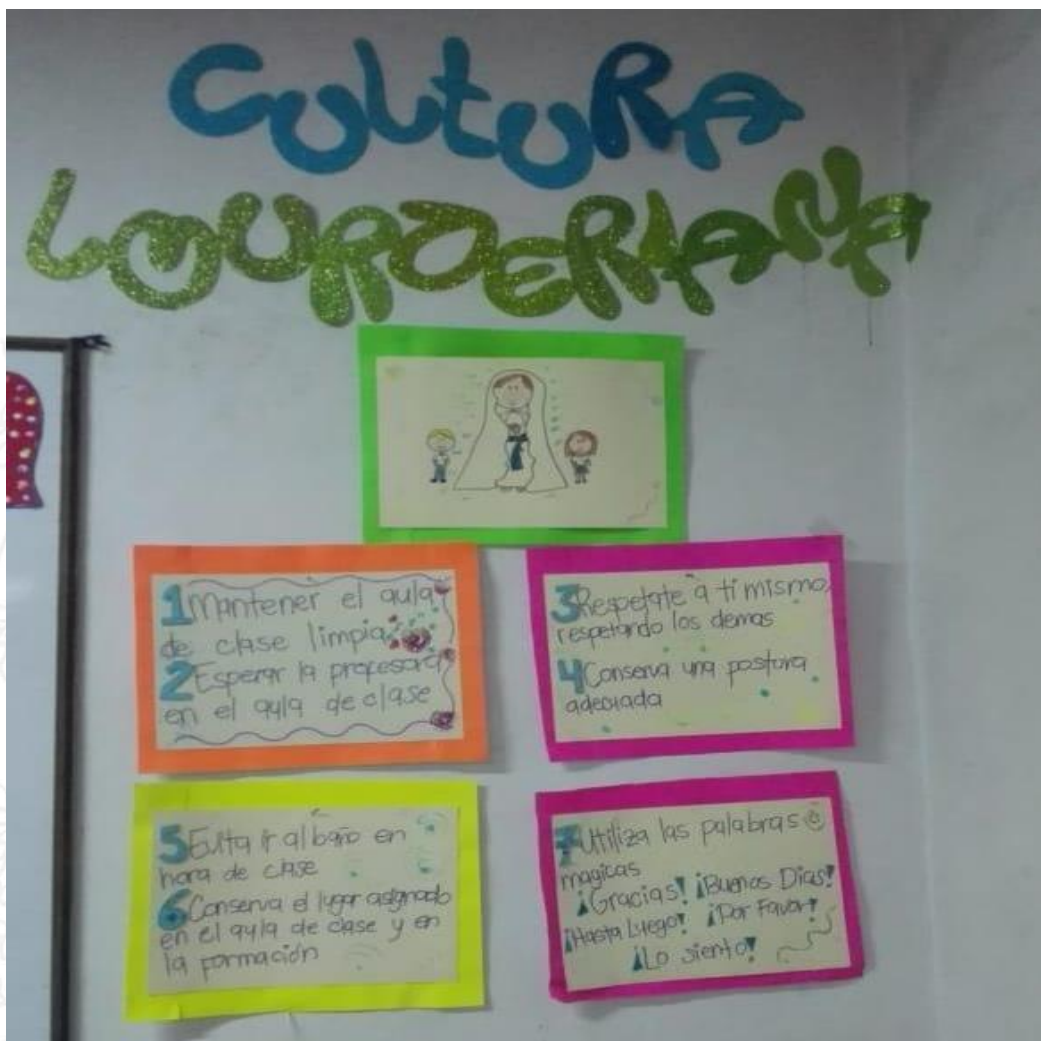 CULtURA
LOURDERIANA
1 Mantener el aula
de clase limpia
2 Esperar la profesora
en el aula de clase
3 Respetate a ti mismo,
respetando los demas
4 Conserva una postura
adecuada
5 Evita ir al baño en
hora de clase
6 Conserva el lugar asignado
en el aula de clase y en
la formación
7 Utiliza las palabras
magicas
¡Gracias! ¡Buenos Dias!
¡Hasta Luego! ¡Por Favor!
¡Lo siento!